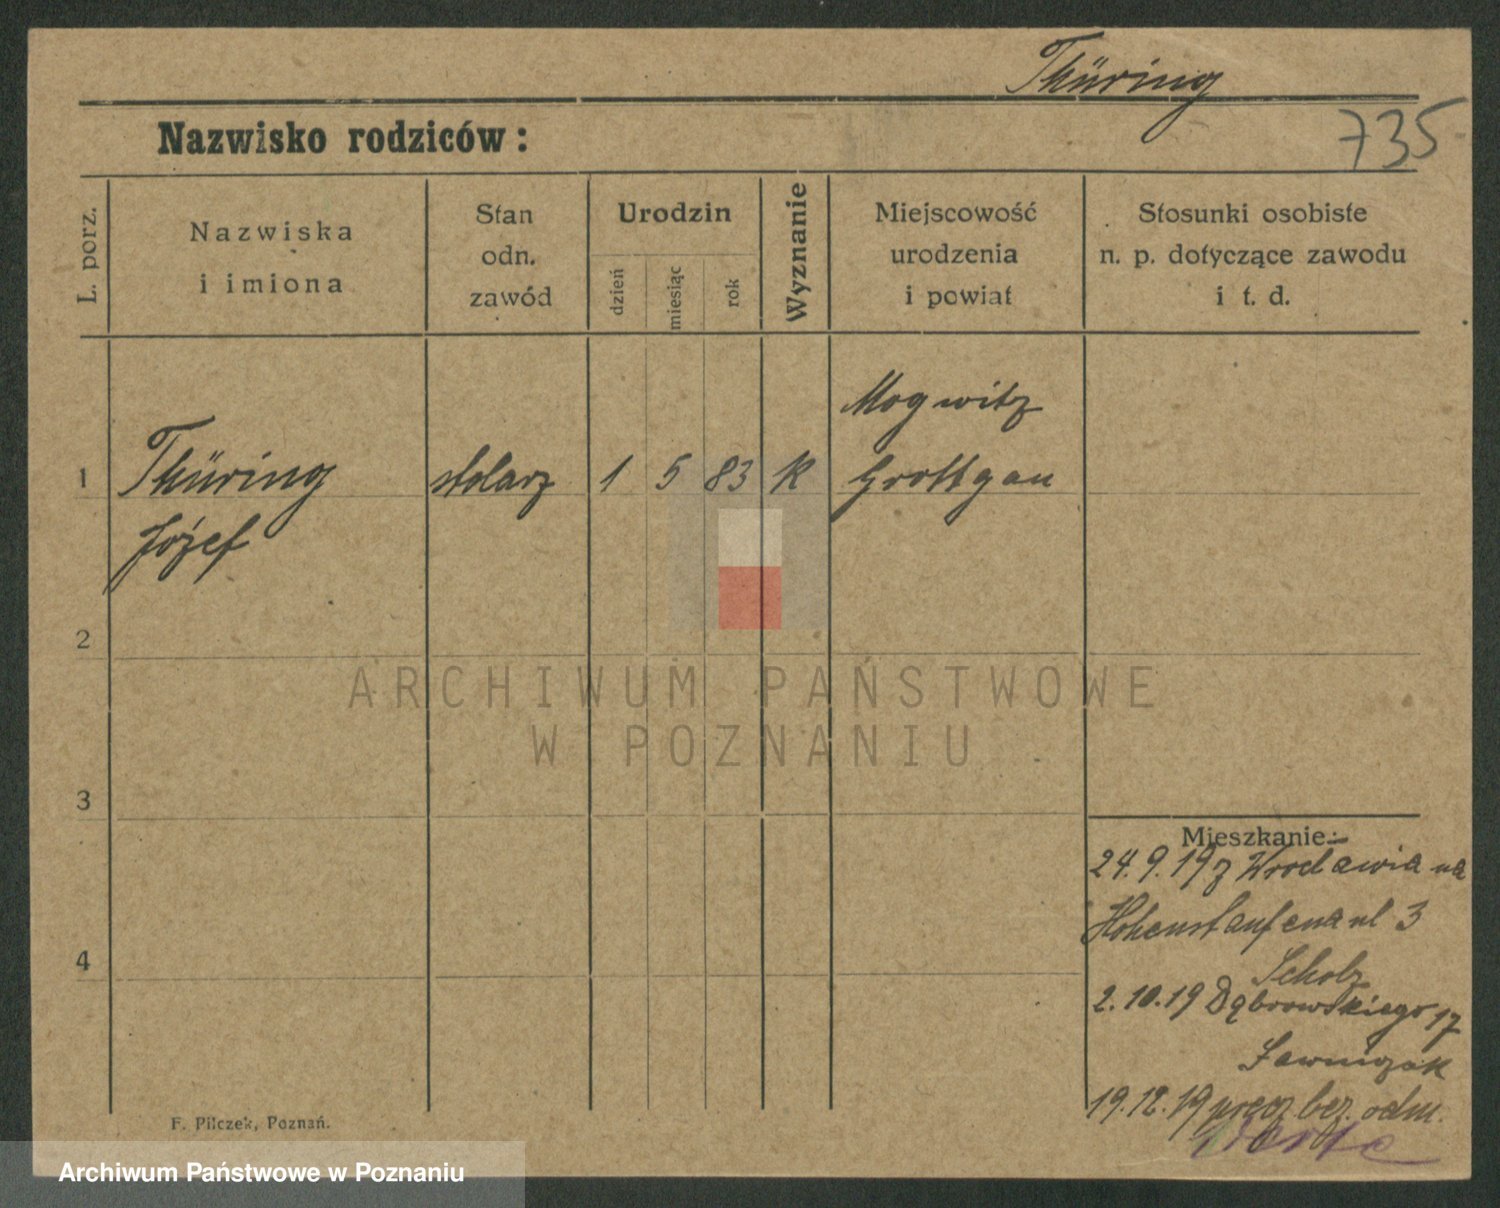 Thüring
735
Nazwisko rodziców:
L. porz.
Nazwiska
i imiona
Stan
odn.
zawód
Urodzin
dzień
miesiąc
rok
Wyznanie
Miejscowość
urodzenia
i powiat
Stosunki osobiste
n. p. dotyczące zawodu
i t. d.
Mogwitz
1 Thüring stolarz 1 5 83 K Grottgau
Józef
2
3
4
ARCHIWUM PAŃSTWOWE
W POZNANIU
Mieszkanie:
24.9.19 z Wrocławia na
Hohenstaufena ul 3
Scholz
2.10.19 Dąbrowskiego 17
Ławniczak
19.12.19 precz bez odm.
F. Pilczek, Poznań.
Archiwum Państwowe w Poznaniu